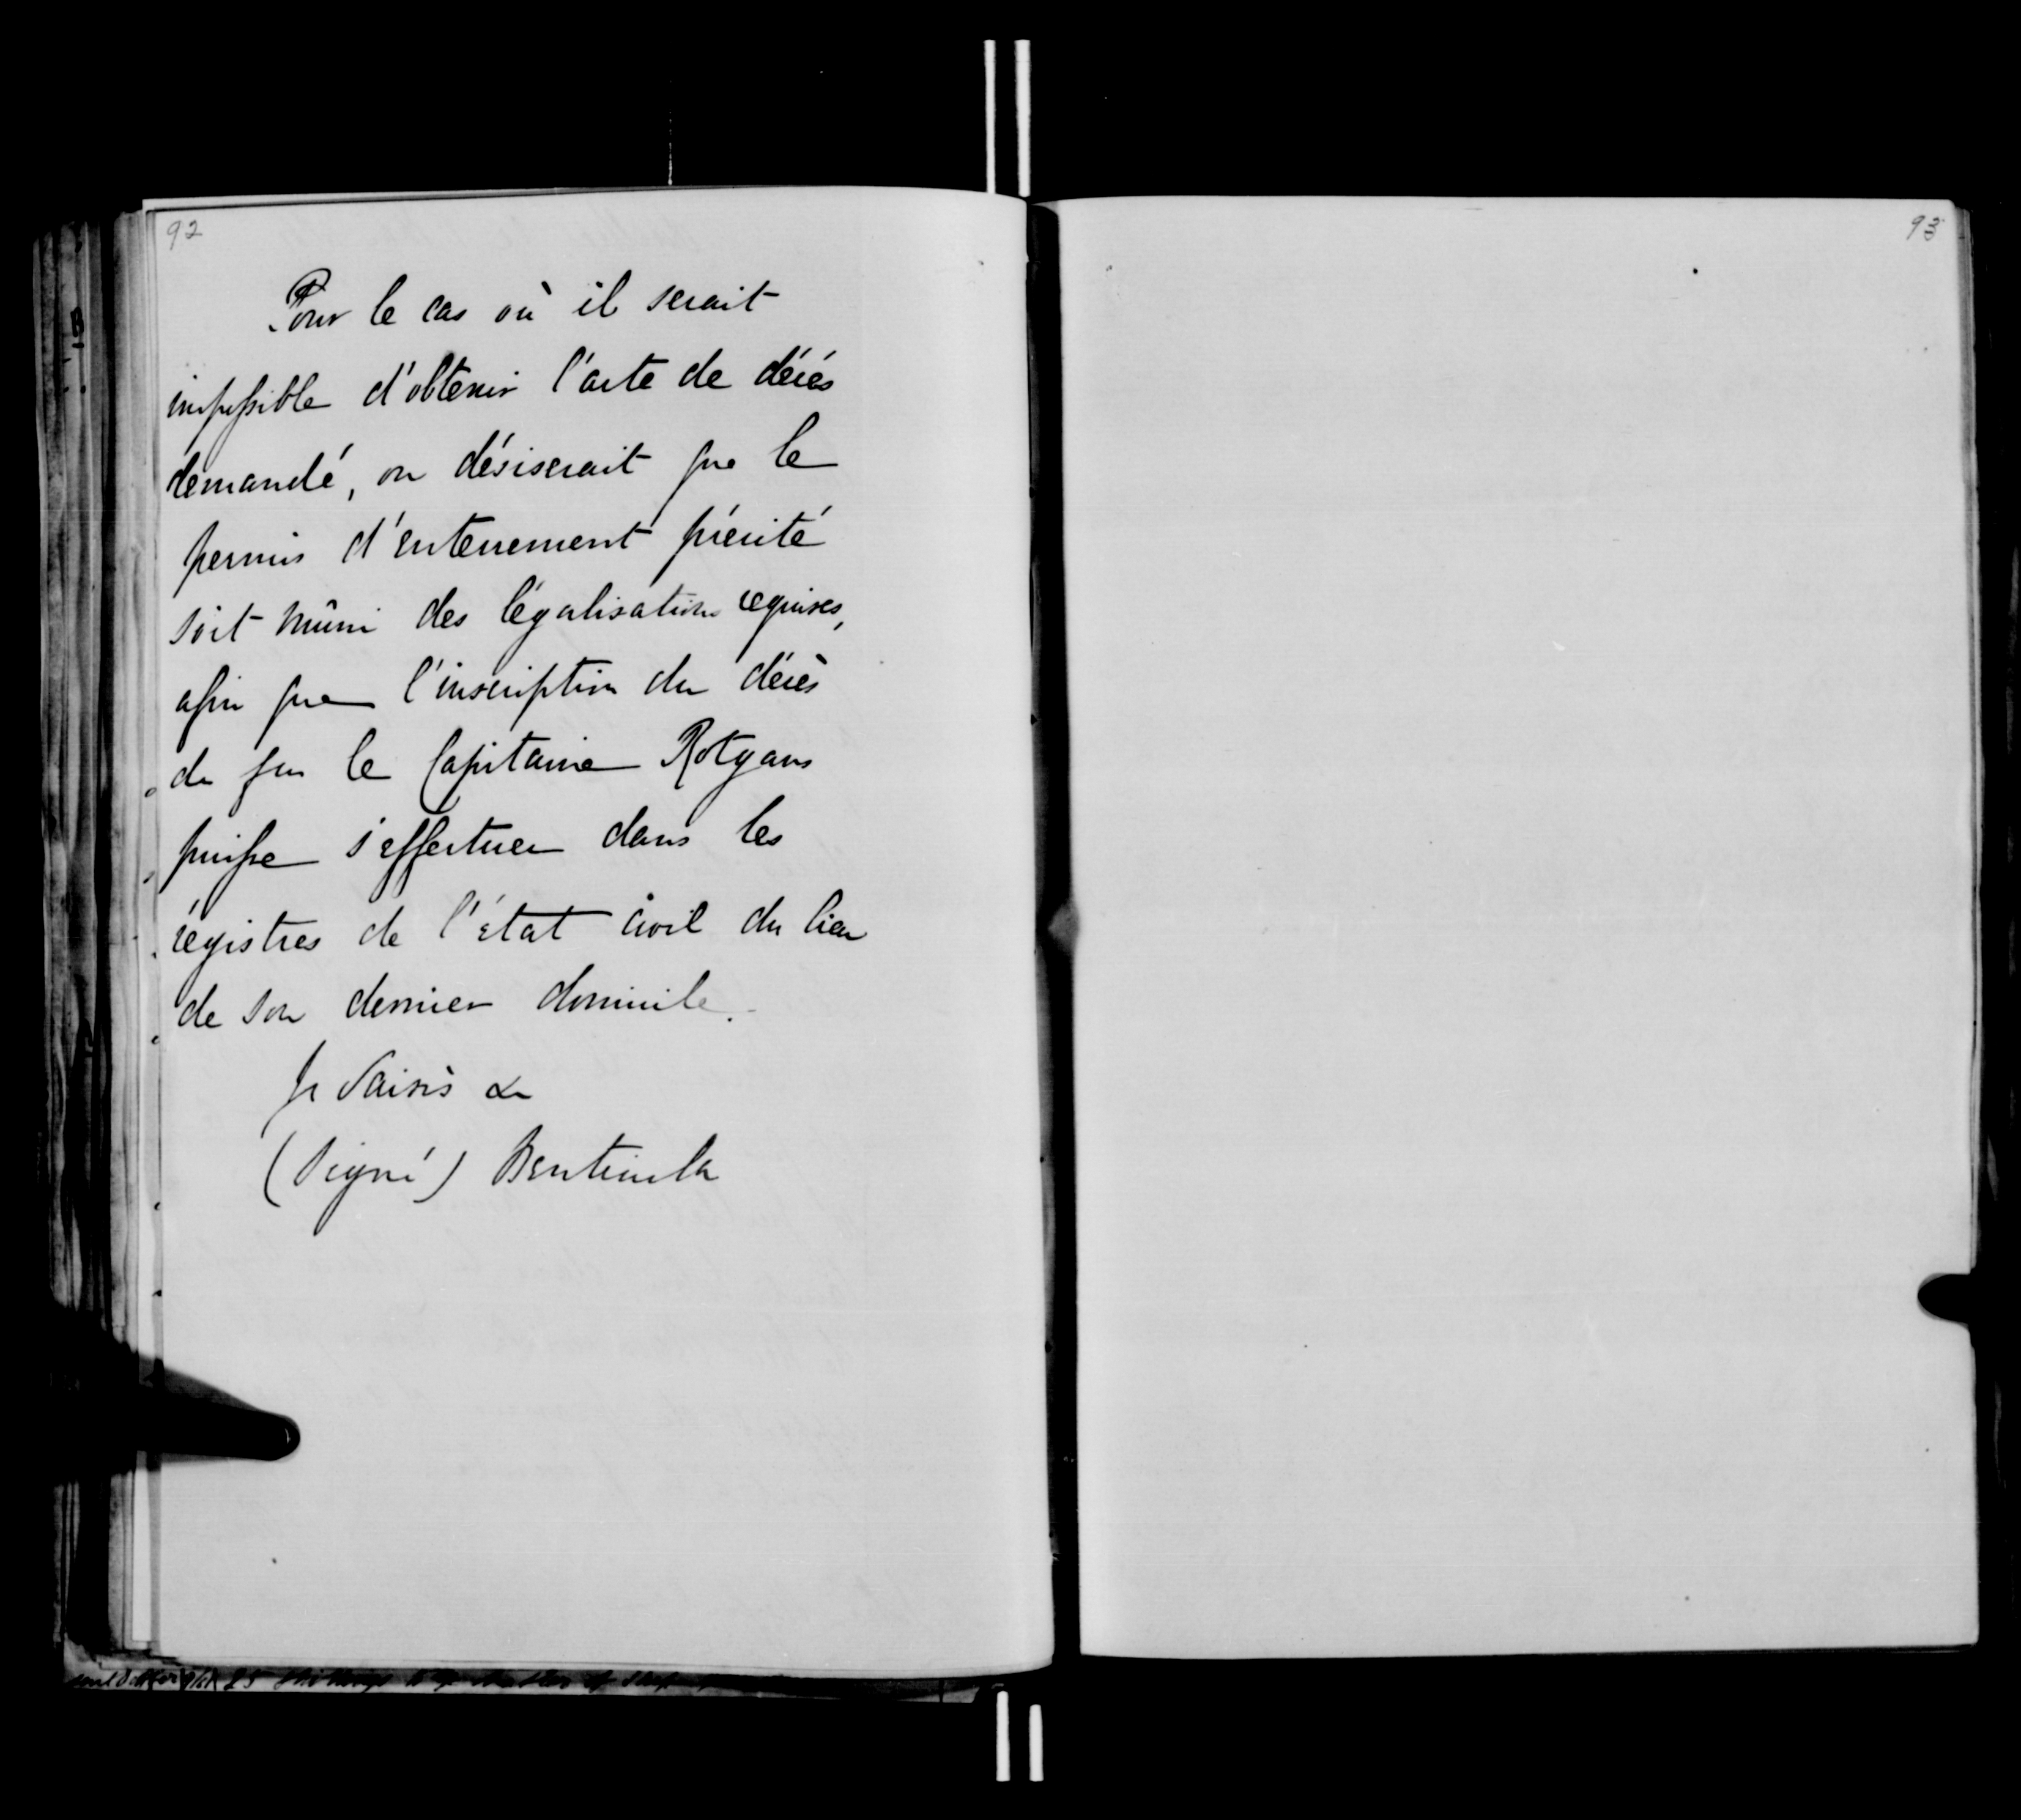 92
93
Pour le cas où il serait
impossible d'obtenir l'acte de décés
demandé, on désirerait que le
permis d'enterrement précité
soit mûni des légalisations requises,
afin que l'inscription du décès
de feu le Capitaine Rotgans
puisse s'effectuer dans les
régistres de l'état civil du lieu
de son dernier domicile.
Je saisis &c
(Signé) Bentinck